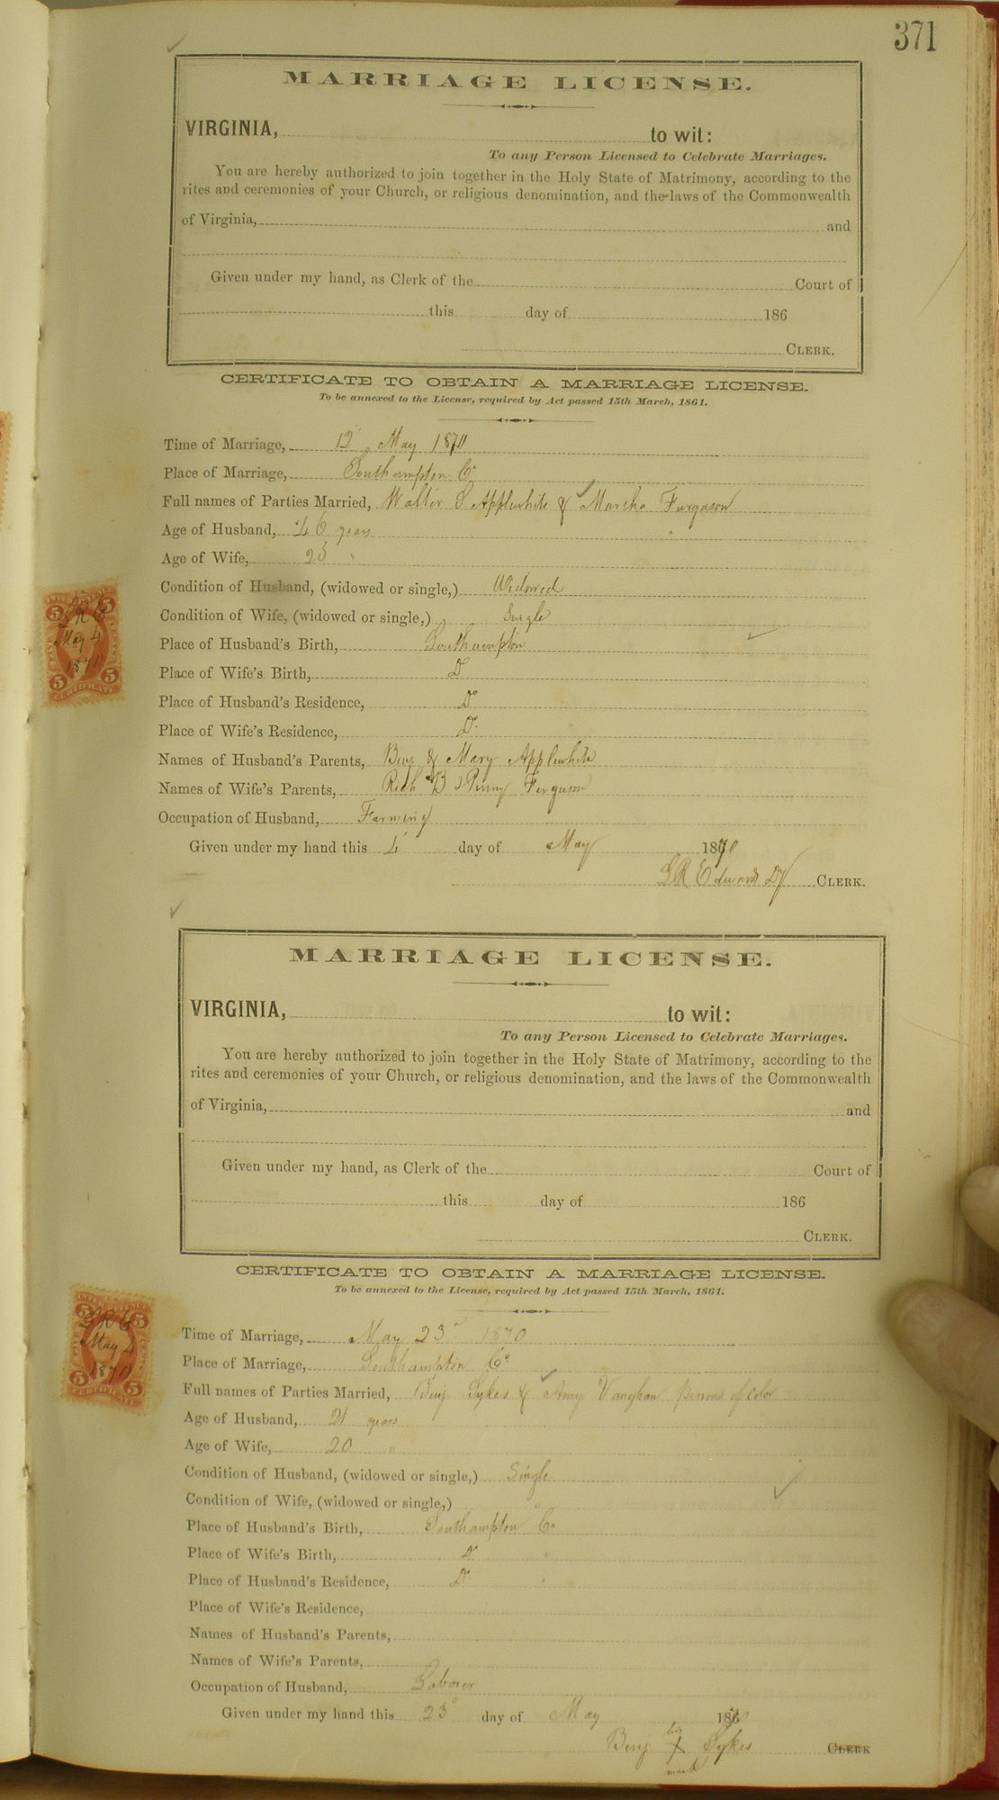 371
MARRIAGE LICENSE.
VIRGINIA, to wit:
To any Person Licensed to Celebrate Marriages.
You are hereby authorized to join together in the Holy State of Matrimony, according to the
rites and ceremonies of your Church, or religious denomination, and the laws of the Commonwealth
of Virginia, and
Given under my hand, as Clerk of the Court of
this day of 186
CLERK.
CERTIFICATE TO OBTAIN A MARRIAGE LICENSE.
To be annexed to the License, required by Act passed 15th March, 1861.
Time of Marriage, 12 May 1870
Place of Marriage, Southampton Co
Full names of Parties Married, Walter S Applewhite & Martha Furgason
Age of Husband, 46 years
Age of Wife, 25 "
Condition of Husband, (widowed or single,) Widowed
Condition of Wife, (widowed or single,) Single
Place of Husband's Birth, Southampton
Place of Wife's Birth, Do
Place of Husband's Residence, Do
Place of Wife's Residence, Do
Names of Husband's Parents, Benj & Mary Applewhite
Names of Wife's Parents, Rich B & Penny Ferguson
Occupation of Husband, Farming
Given under my hand this 4 day of May 1870
L R Edwards Dy CLERK.
5 5
L R E
May 4
1870
5 5
CERTIFICATE
MARRIAGE LICENSE.
VIRGINIA, to wit:
To any Person Licensed to Celebrate Marriages.
You are hereby authorized to join together in the Holy State of Matrimony, according to the
rites and ceremonies of your Church, or religious denomination, and the laws of the Commonwealth
of Virginia, and
Given under my hand, as Clerk of the Court of
this day of 186
CLERK.
CERTIFICATE TO OBTAIN A MARRIAGE LICENSE.
To be annexed to the License, required by Act passed 15th March, 1861.
Time of Marriage, May 23d 1870
Place of Marriage, Southampton Co
Full names of Parties Married, Benj Sykes & Amy Vaughan persons of color
Age of Husband, 21 years
Age of Wife, 20 "
Condition of Husband, (widowed or single,) Single
Condition of Wife, (widowed or single,) "
Place of Husband's Birth, Southampton Co
Place of Wife's Birth, Do "
Place of Husband's Residence, Do "
Place of Wife's Residence,
Names of Husband's Parents,
Names of Wife's Parents,
Occupation of Husband, Laborer
Given under my hand this 23d day of May 187
Benj his X mark Sykes CLERK
5 5
L R E
May 4
1870
5 5
CERTIFICATE